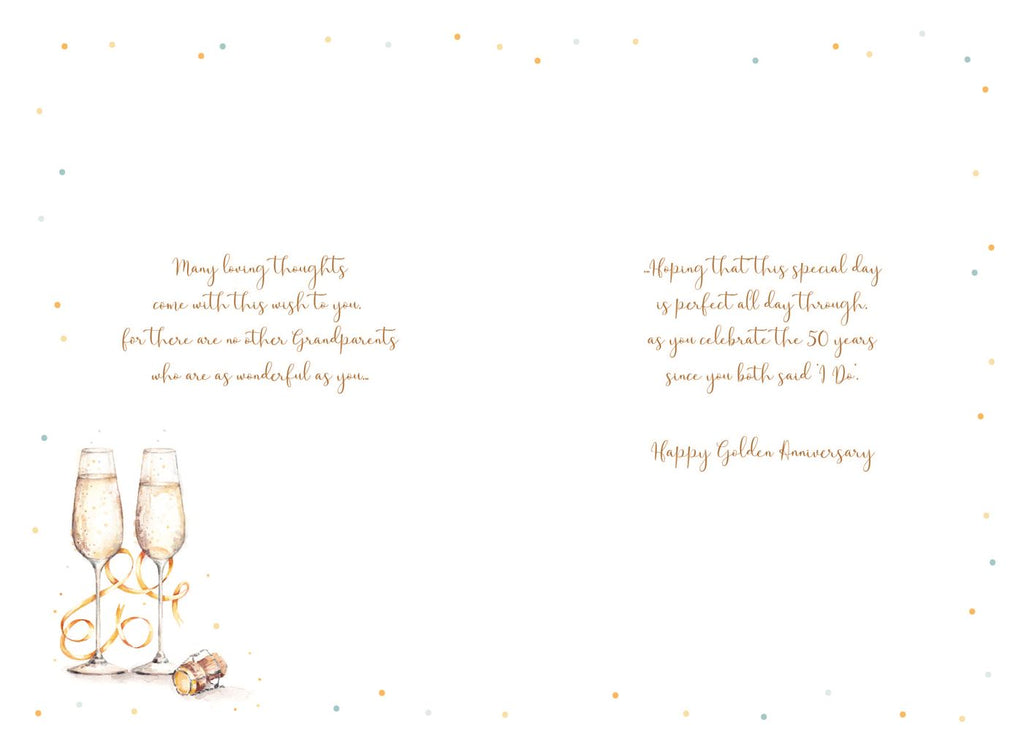 Many loving thoughts
come with this wish to you,
for there are no other Grandparents
who are as wonderful as you...
...Hoping that this special day
is perfect all day through,
as you celebrate the 50 years
since you both said 'I Do'.
Happy Golden Anniversary